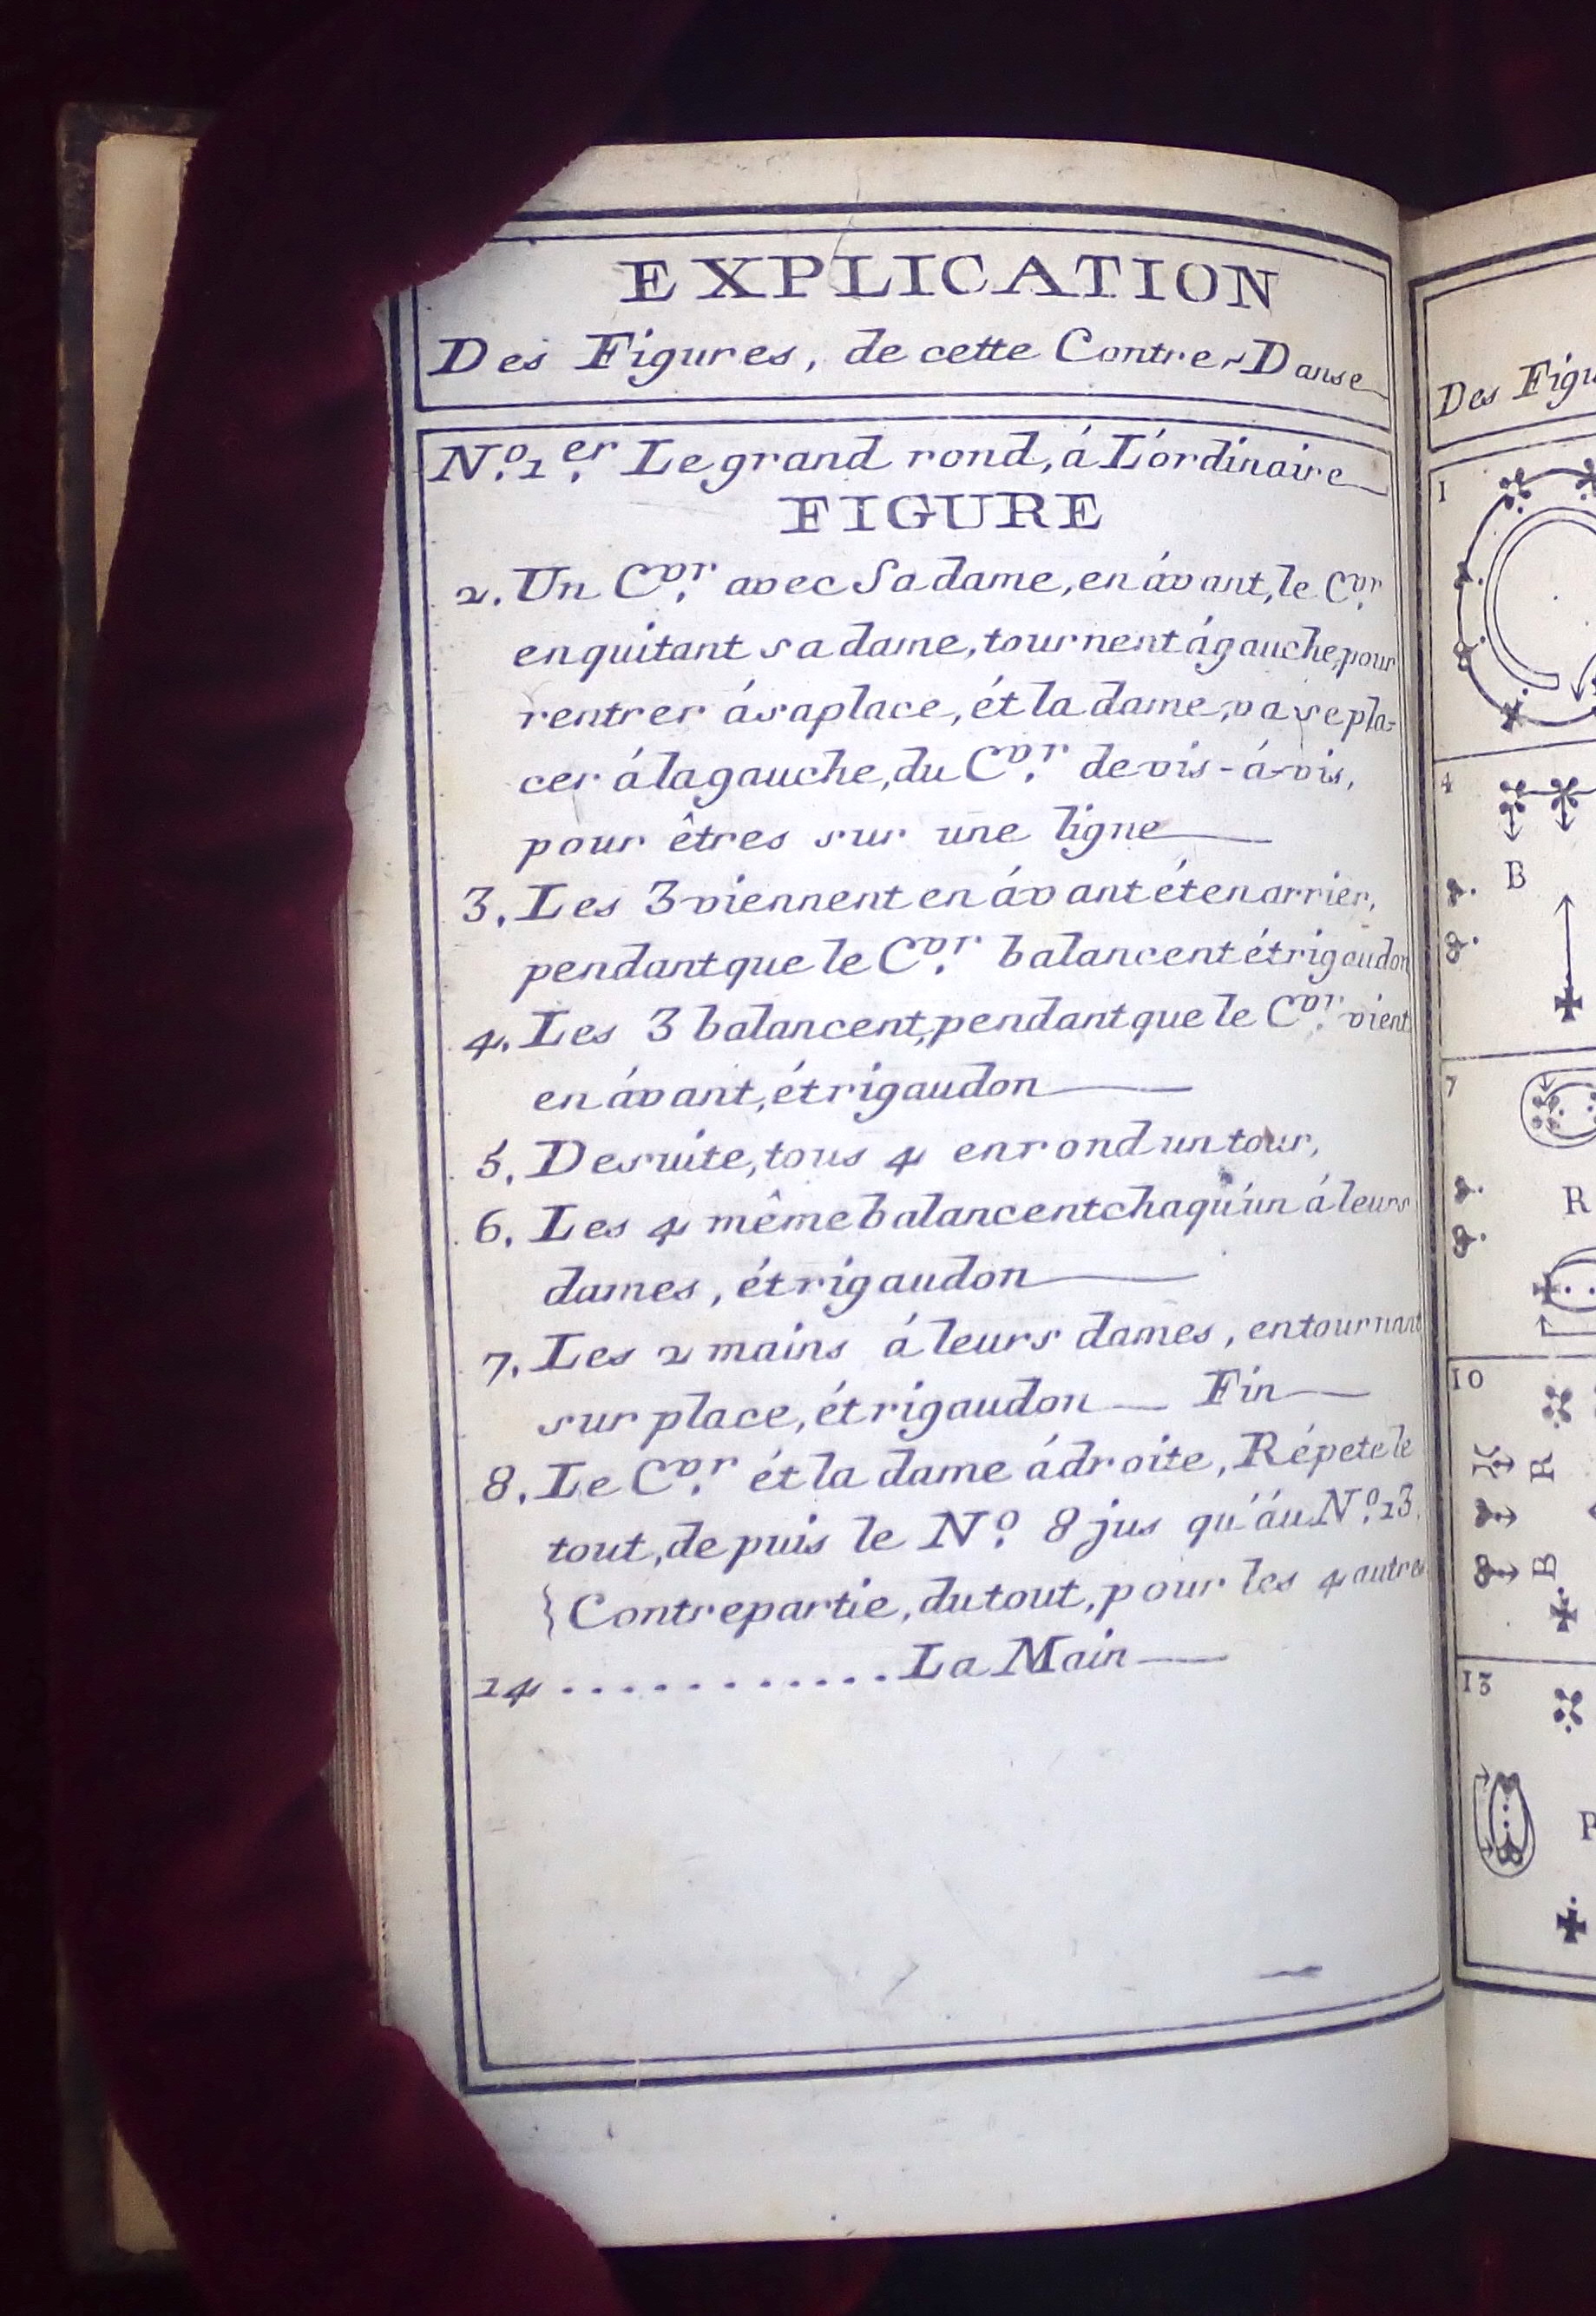 EXPLICATION
Des Figures, de cette Contre-Danse
N.º 1.er Le grand rond, á L'órdinaire
FIGURE
2. Un C.vr avec Sa dame, en ávant, le C.vr
en quitant sa dame, tournent á gauche, pour
rentrer á sa place, ét la dame, va se pla-
cer á la gauche, du C.vr de vis-á-vis,
pour êtres sur une ligne
3. Les 3 viennent en ávant ét en arrier,
pendant que le C.vr balancent ét rigaudon
4. Les 3 balancent, pendant que le C.vr vient
en ávant, ét rigaudon
5. De suite, tous 4 en rond un tour,
6. Les 4 même balancent chaqu'ún á leurs
dames, ét rigaudon
7. Les 2 mains á leurs dames, en tournant
sur place, ét rigaudon — Fin
8. Le C.vr ét la dame á droite, Répete le
tout, depuis le N.º 8 jus qu'áu N.º 13.
} Contrepartie, du tout, pour les 4 autres
14 ............ La Main
Des Figu
1
4
B
7
R
10
R
B
13